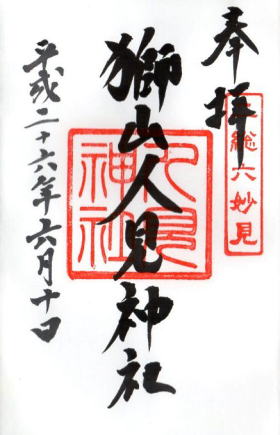 奉拝
総六妙見
獅山人見神社
人見神社
平成二十六年六月十日